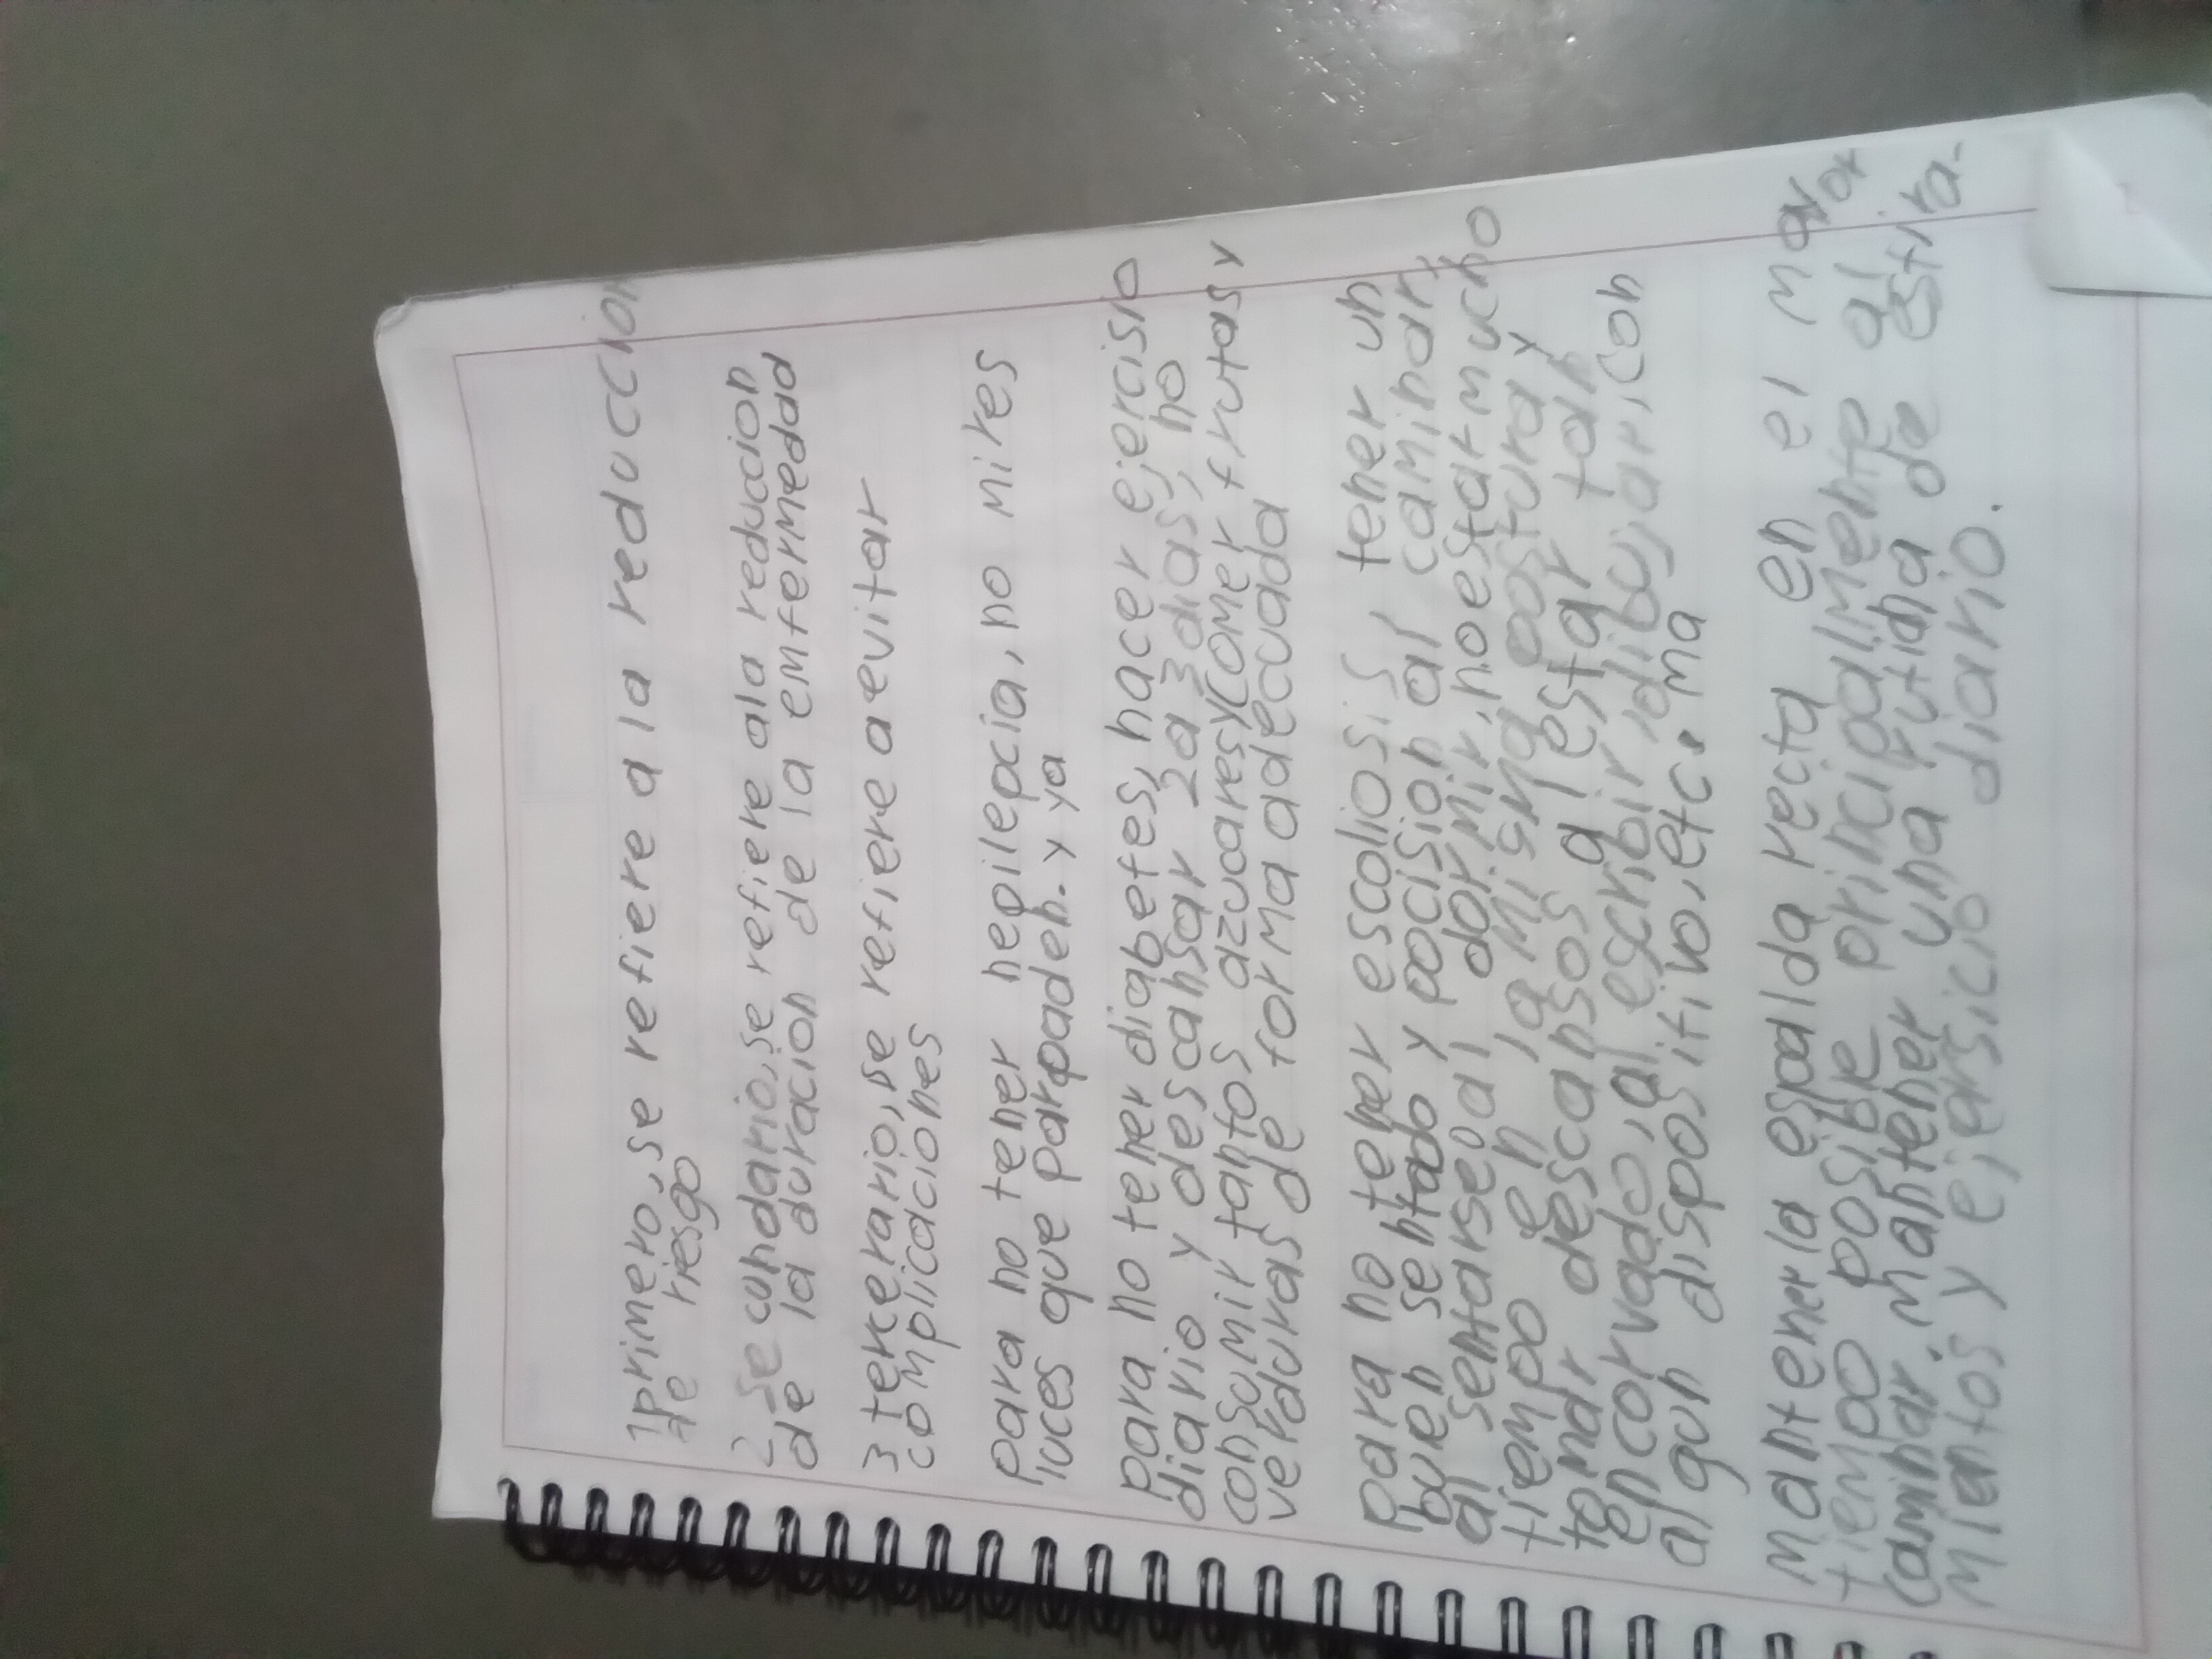 1 primero, se refiere a la reduccion
de riesgo
2 Secundario, se refiere ala reducion
de la duracion de la emfermedad
3 tercerario, se refiere a evitar
complicaciones
para no tener hepilepcia, no mires
luces que parpadeen. y ya
para no tener diabetes, hacer ejercisio
diario y descansar 2 a 3 dias, no
consumir tantos azucares y comer frutas y
verduras de forma adecuada
para no tener escoliosis, tener un
buen sentado y pocision al caminar,
al sentarse o al dormir, no estar mucho
tiempo en la misma postura y
tomar descansos al estar tan
encorvado, al escribir, dibujar, con
algun dispositivo, etc. ma
mantener la espalda recta en el mayor
tiempo posible principalmente al
caminar. mantener una rutina de estira-
mientos y ejarsicio diario.